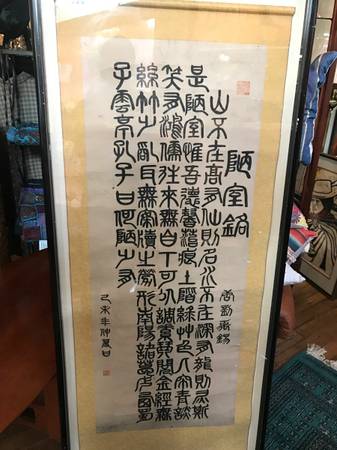 陋室銘
唐劉禹錫
山不在高有仙則名水不在深有龍則灵斯
是陋室惟吾德馨苔痕上階綠艸色入帘青談
笑有鴻儒往來無白丁可以調素琴閱金經無
絲竹之亂耳無案牘之勞形南陽諸葛廬西蜀
子雲亭孔子曰何陋之有
己未年仲夏日